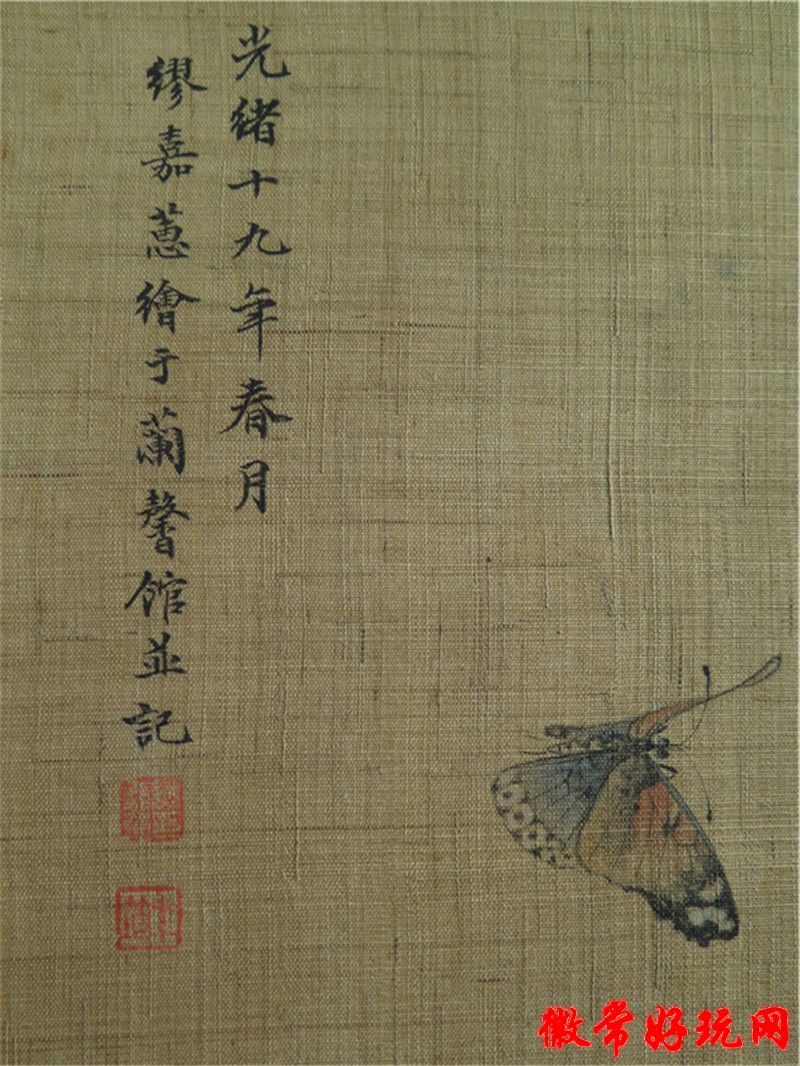 光緒十九年春月
繆嘉蕙繪于蘭馨館並記
徽常好玩网